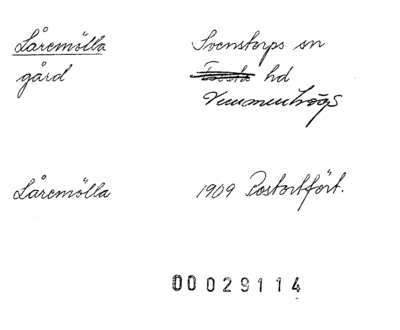 Låremölla Svenstorps sn
gård hd
Vemmenhögs
Låremölla 1909 Postortfört.
00029114